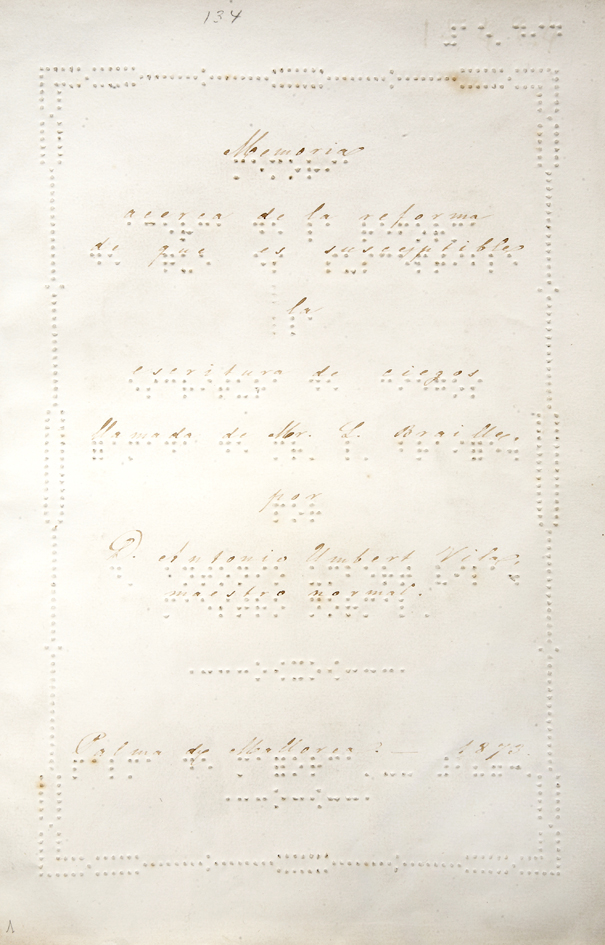 134
Memoria
acerca de la reforma
de que es susceptible
la
escritura de ciegos
llamada de Mr. L. Braille,
por
D. Antonio Umbert Vila,
maestro normal.
Palma de Mallorca: — 1873.